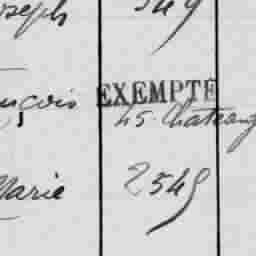 oseph 549
nçois EXEMPTÉ
45 Chateaug
Marie 2549